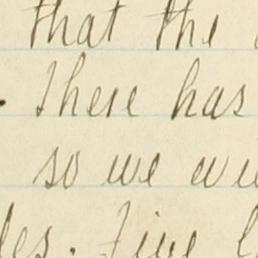 that the
. There has
so we
les. Five